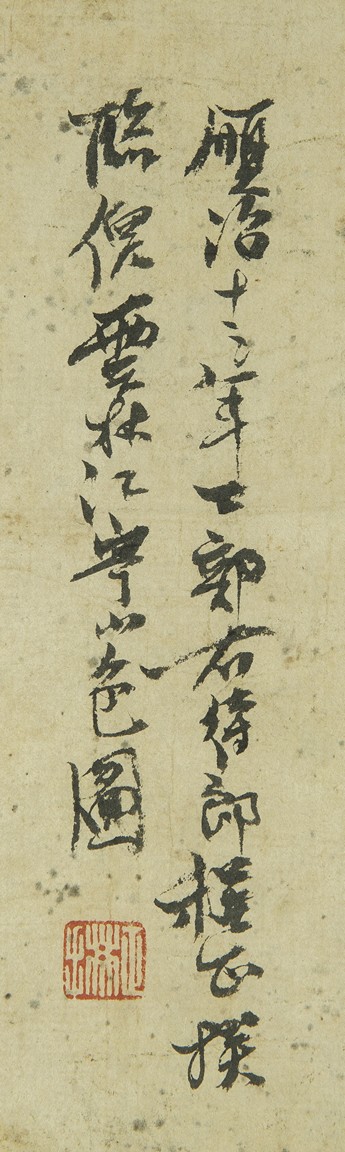 順治十二年工部右侍郎程正揆
臨倪雲林江寧山色圖